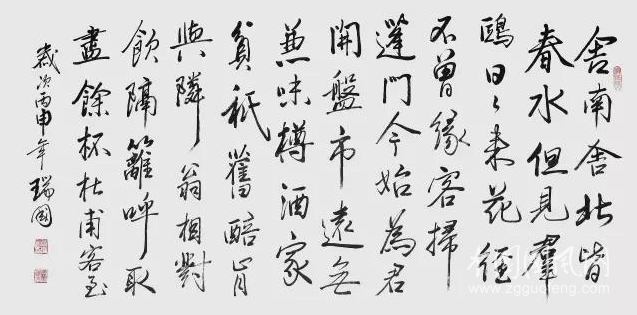 舍南舍北皆
春水但見羣
鷗日々来花徑
不曾緣客掃
蓬門今始為君
開盤市遠無
兼味樽酒家
貧祗舊醅肯
與隣翁相對
飲隔籬呼取
盡餘杯杜甫客至
歲次丙申年瑞國
www.zgguofeng.com